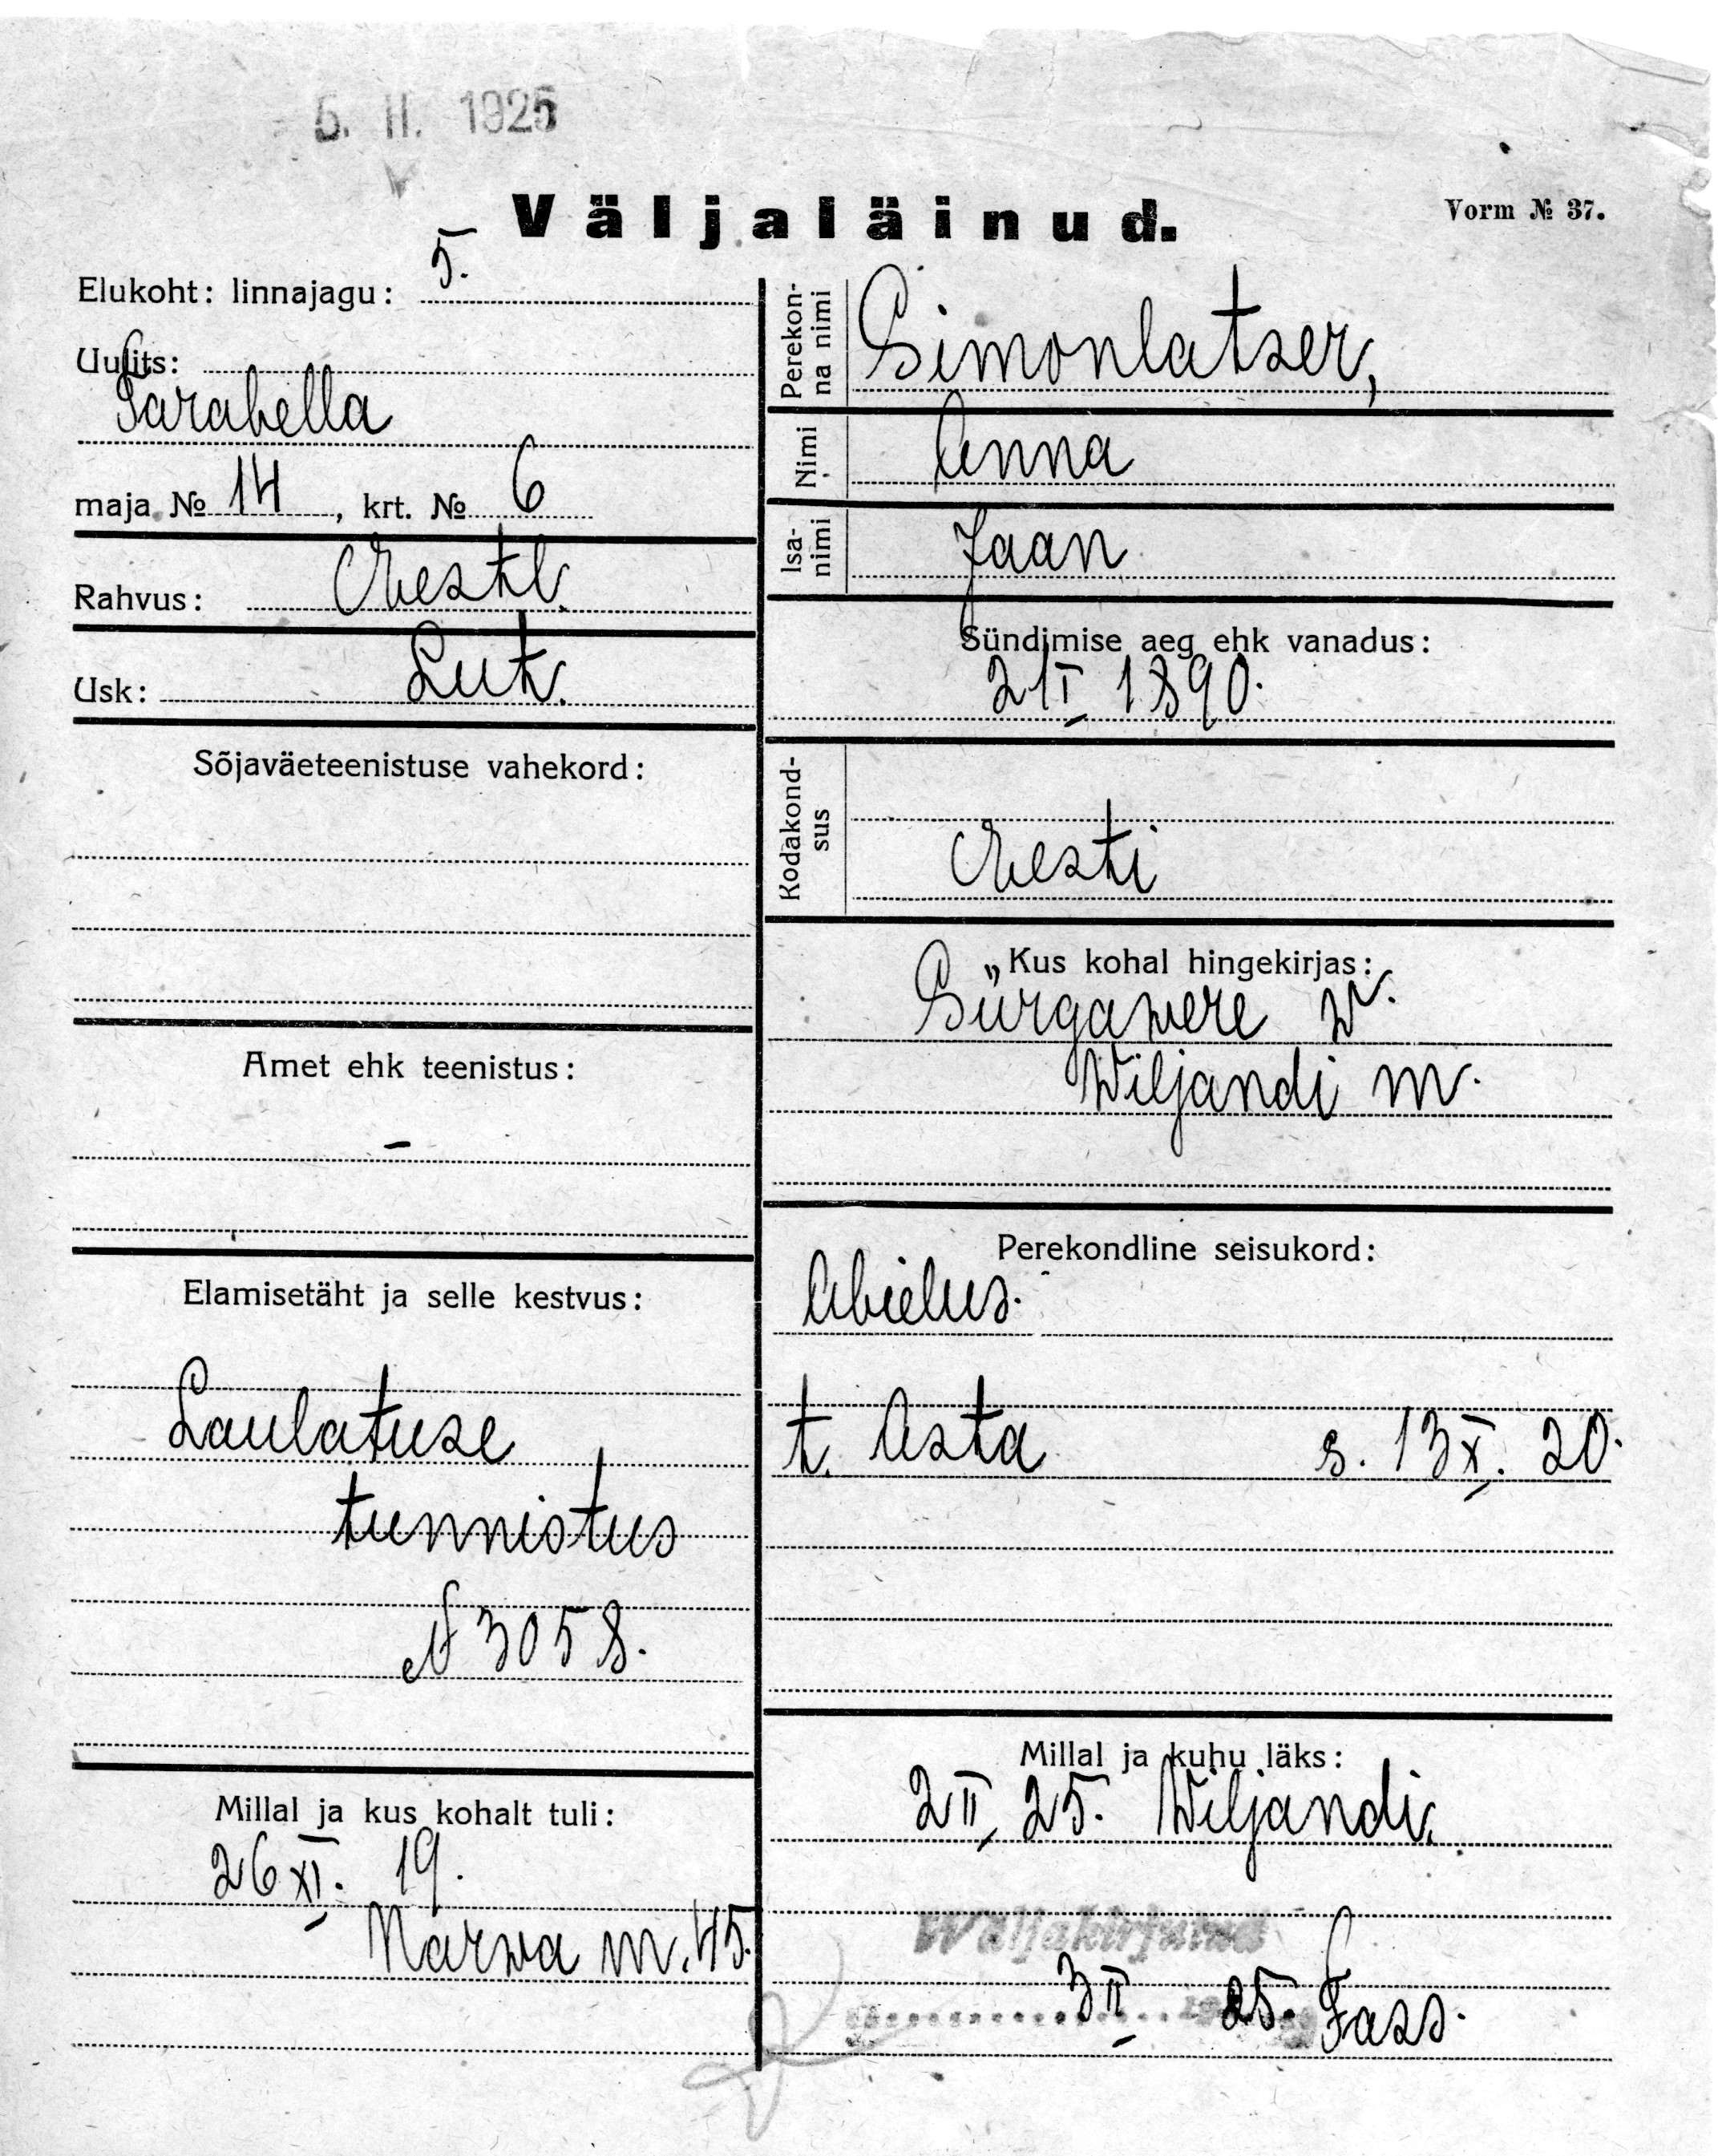 5. II. 1925
Väljaläinud.
Vorm № 37.
Elukoht: linnajagu: 5.
Uulits:
Parabella
maja № 14, krt. № 6
Rahvus: Eestl.
Usk: Lut.
Sõjaväeteenistuse vahekord:
Amet ehk teenistus:
–
Elamisetäht ja selle kestvus:
Laulatuse
tunnistus
№ 3058.
Millal ja kus kohalt tuli:
26 XI. 19.
Narwa m. 45.
Perekon-
na nimi
Simonlatser,
Nimi
Anna
Isa-
nimi
Jaan
Sündimise aeg ehk vanadus:
21 I 1890.
Kodakond-
sus
Eesti
„Kus kohal hingekirjas:
Sürgawere w.
Wiljandi m.
Perekondline seisukord:
Abielus.
t. Asta s. 13 X. 20.
Millal ja kuhu läks:
2 II 25. Wiljandi.
Wäljakirjutud
3 II 25. Fass.